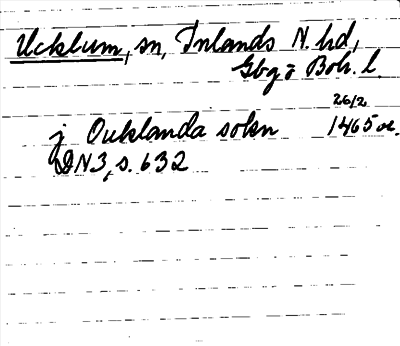 Ucklum, sn, Inlands N. hd,
Gbg o Boh. l.
26/2
j Ouklanda sokn 1465 or.
DN3, s. 632